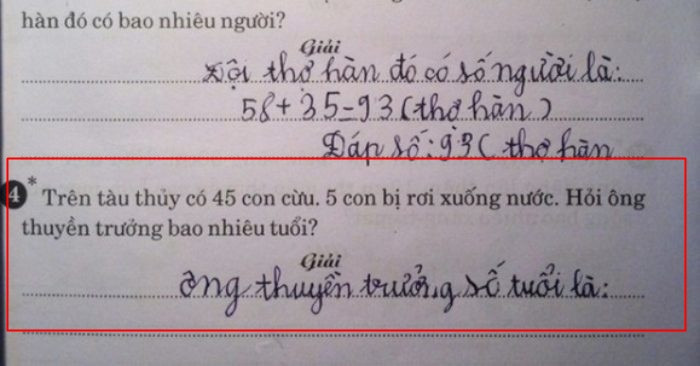 hàn đó có bao nhiêu người?
Giải
Đội thợ hàn đó có số người là:
58 + 35 = 93 (thợ hàn)
Đáp số: 93 ( thợ hàn
4* Trên tàu thủy có 45 con cừu. 5 con bị rơi xuống nước. Hỏi ông
thuyền trưởng bao nhiêu tuổi?
Giải
ông thuyền trưởng số tuổi là: